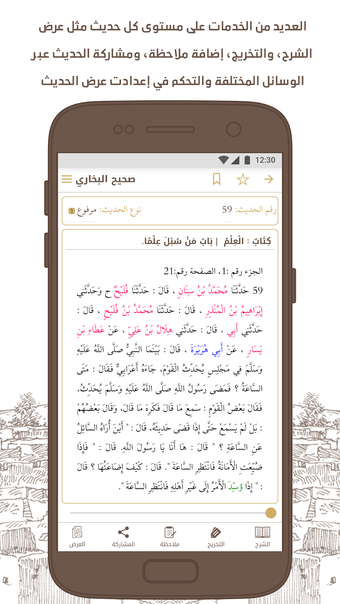 العديد من الخدمات على مستوى كل حديث مثل عرض
الشرح، والتخريج، إضافة ملاحظة، ومشاركة الحديث عبر
الوسائل المختلفة والتحكم في إعدادت عرض الحديث
12:30
صحيح البخاري
رقم الحديث: 59 نوع الحديث: مرفوع
كِتَابُ : الْعِلْمِ | بَابُ مَنْ سُئِلَ عِلْمًا.
الجزء رقم :1، الصفحة رقم:21
59 حَدَّثَنَا مُحَمَّدُ بْنُ سِنَانٍ ، قَالَ : حَدَّثَنَا فُلَيْحٌ ح وَحَدَّثَنِي
إِبْرَاهِيمُ بْنُ الْمُنْذِرِ ، قَالَ : حَدَّثَنَا مُحَمَّدُ بْنُ فُلَيْحٍ ، قَالَ :
حَدَّثَنِي أَبِي ، قَالَ : حَدَّثَنِي هِلَالُ بْنُ عَلِيٍّ ، عَنْ عَطَاءِ بْنِ
يَسَارٍ ، عَنْ أَبِي هُرَيْرَةَ ، قَالَ : بَيْنَمَا النَّبِيُّ صَلَّى اللَّهُ عَلَيْهِ
وَسَلَّمَ فِي مَجْلِسٍ يُحَدِّثُ الْقَوْمَ، جَاءَهُ أَعْرَابِيٌّ فَقَالَ : مَتَى
السَّاعَةُ ؟ فَمَضَى رَسُولُ اللَّهِ صَلَّى اللَّهُ عَلَيْهِ وَسَلَّمَ يُحَدِّثُ،
فَقَالَ بَعْضُ الْقَوْمِ : سَمِعَ مَا قَالَ فَكَرِهَ مَا قَالَ، وَقَالَ بَعْضُهُمْ
: بَلْ لَمْ يَسْمَعْ حَتَّى إِذَا قَضَى حَدِيثَهُ، قَالَ : " أَيْنَ أُرَاهُ السَّائِلُ
عَنِ السَّاعَةِ ؟ " قَالَ : هَا أَنَا يَا رَسُولَ اللَّهِ. قَالَ : " فَإِذَا
ضُيِّعَتِ الْأَمَانَةُ فَانْتَظِرِ السَّاعَةَ ". قَالَ : كَيْفَ إِضَاعَتُهَا ؟ قَالَ
: " إِذَا وُسِّدَ الْأَمْرُ إِلَى غَيْرِ أَهْلِهِ فَانْتَظِرِ السَّاعَةَ ".
الشرح التخريج ملاحظة المشاركة العرض